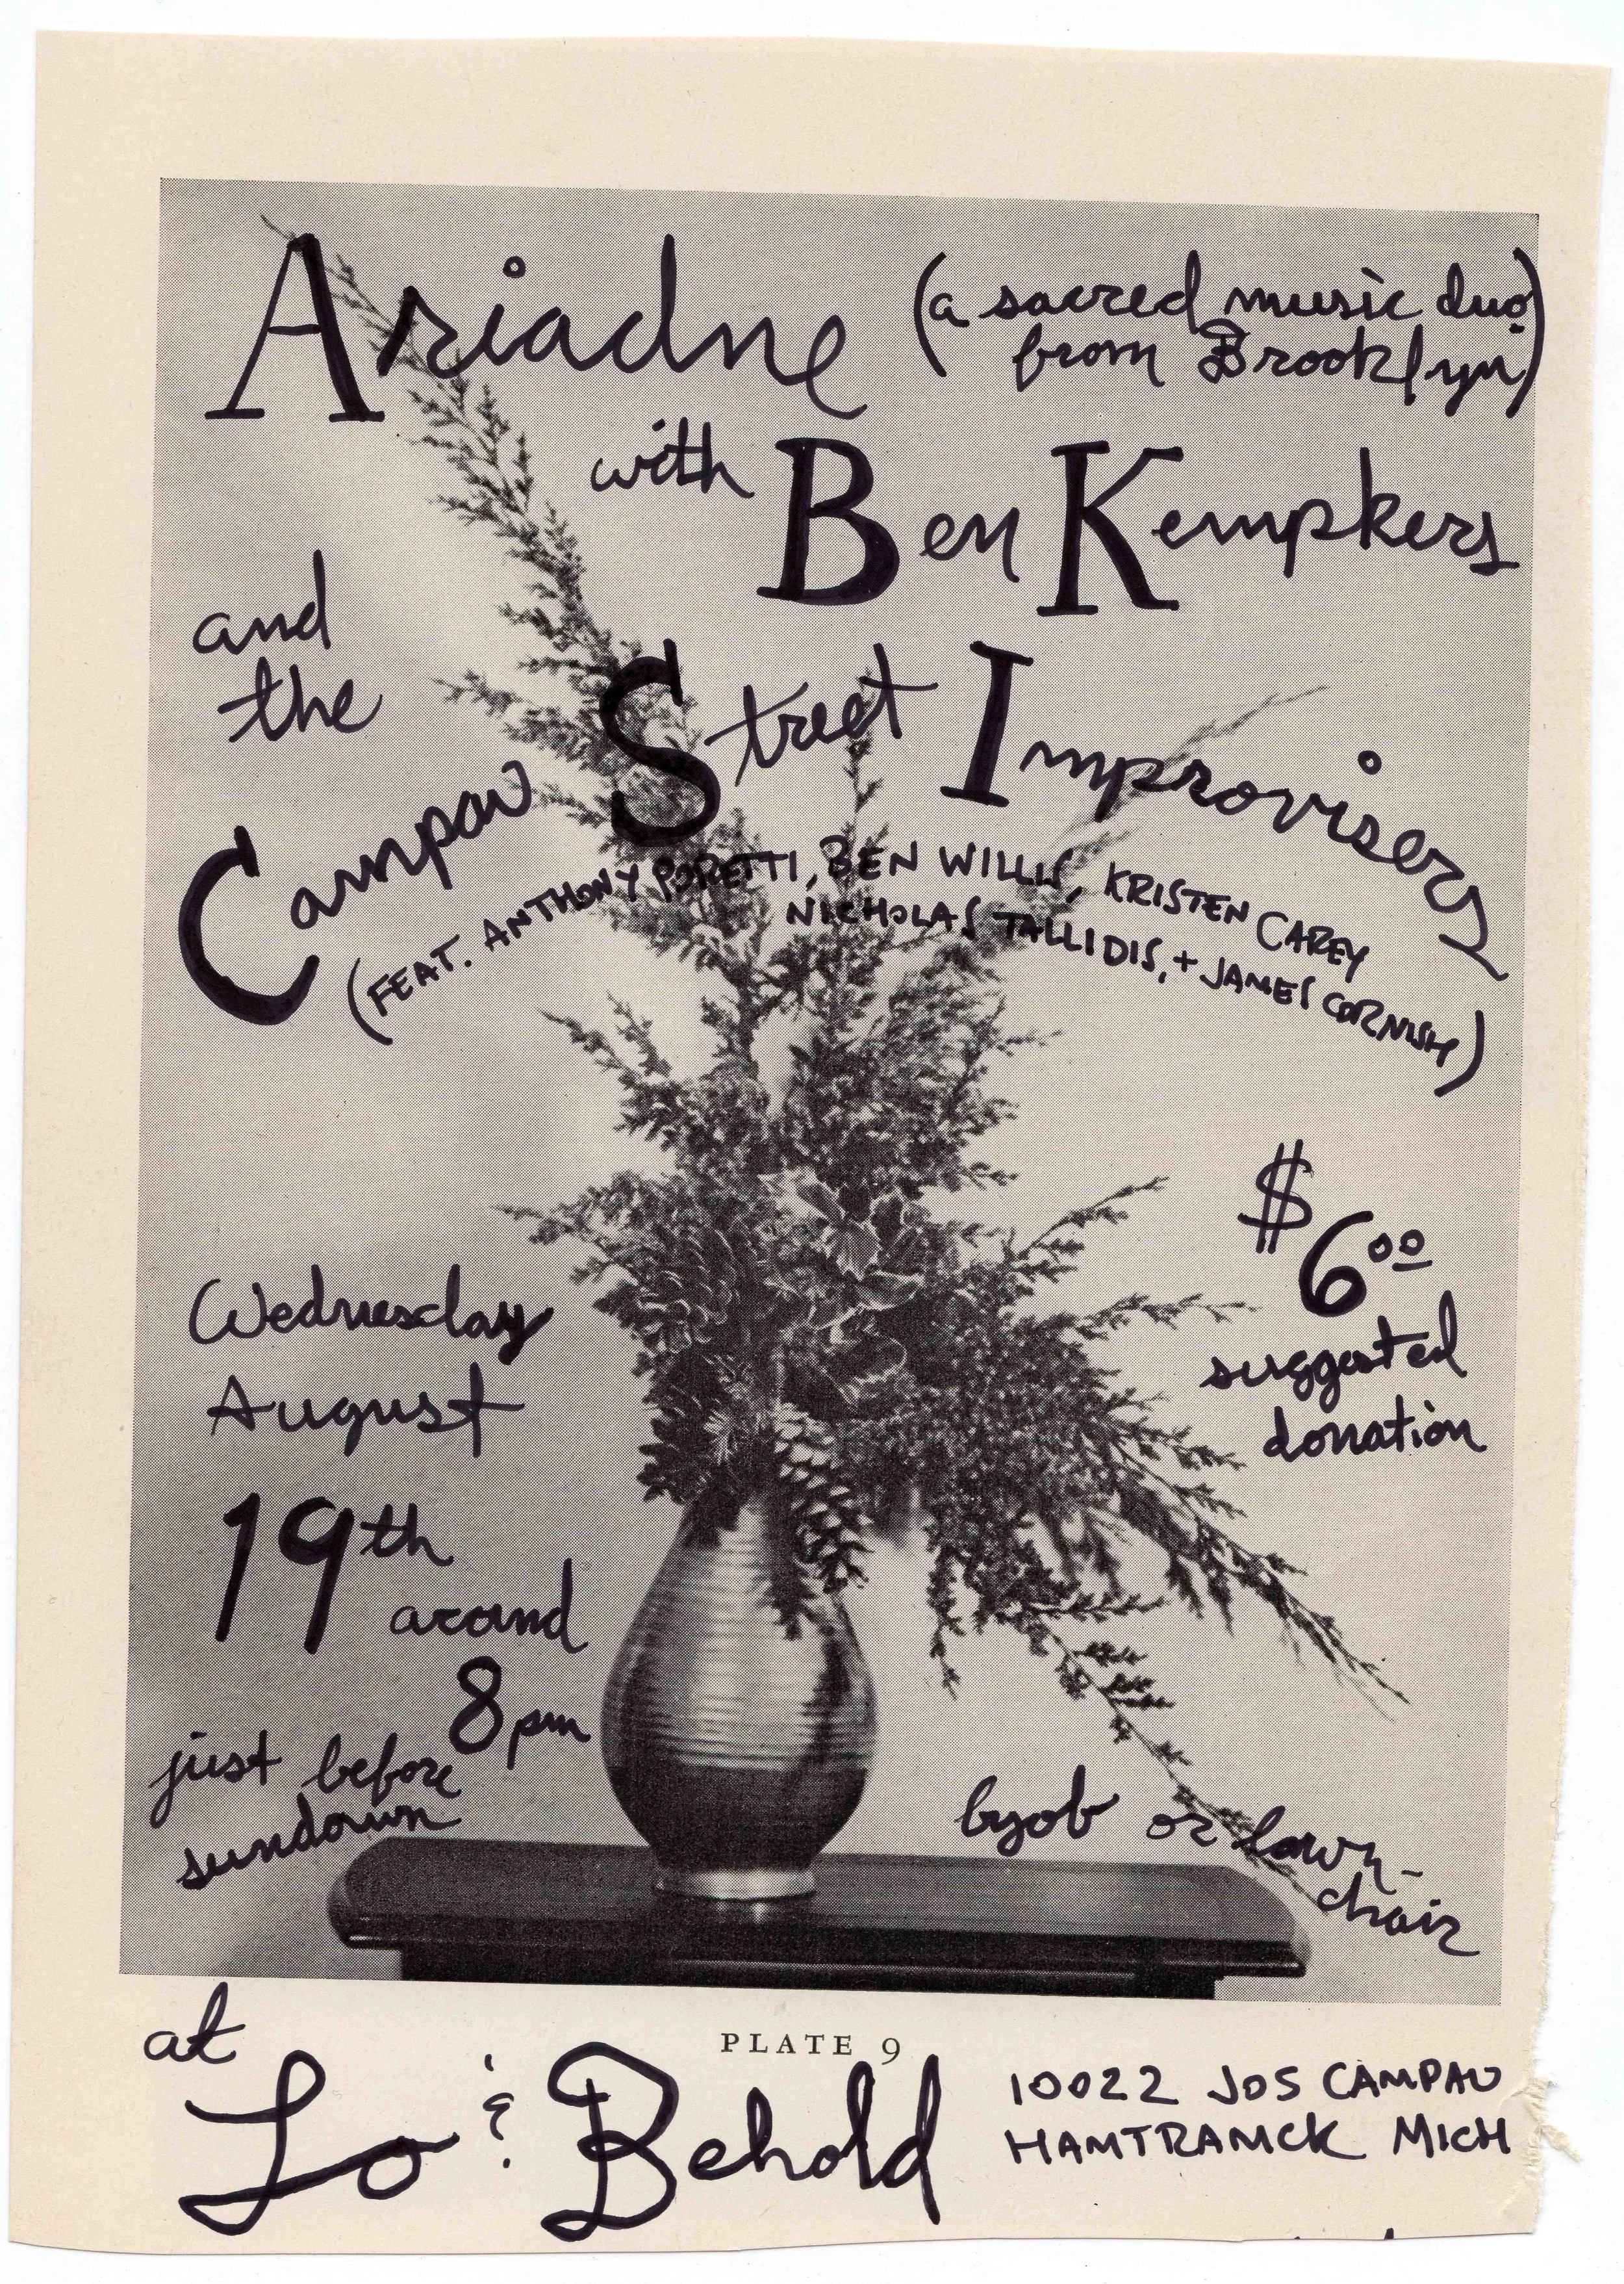 Ariadne (a sacred music duo
from Brooklyn)
with Ben Kempkers
and
the
Campau Street Improvisers
(FEAT. ANTHONY PORETTI, BEN WILLIS, KRISTEN CAREY
NICHOLAS TALLIDIS, + JAMES CORNISH)
$6.00
suggested
donation
Wednesday
August
19th
around
8pm
just before
sundown
byob or lawn-
chair
PLATE 9
at
Lo & Behold
10022 JOS CAMPAU
HAMTRAMCK MICH